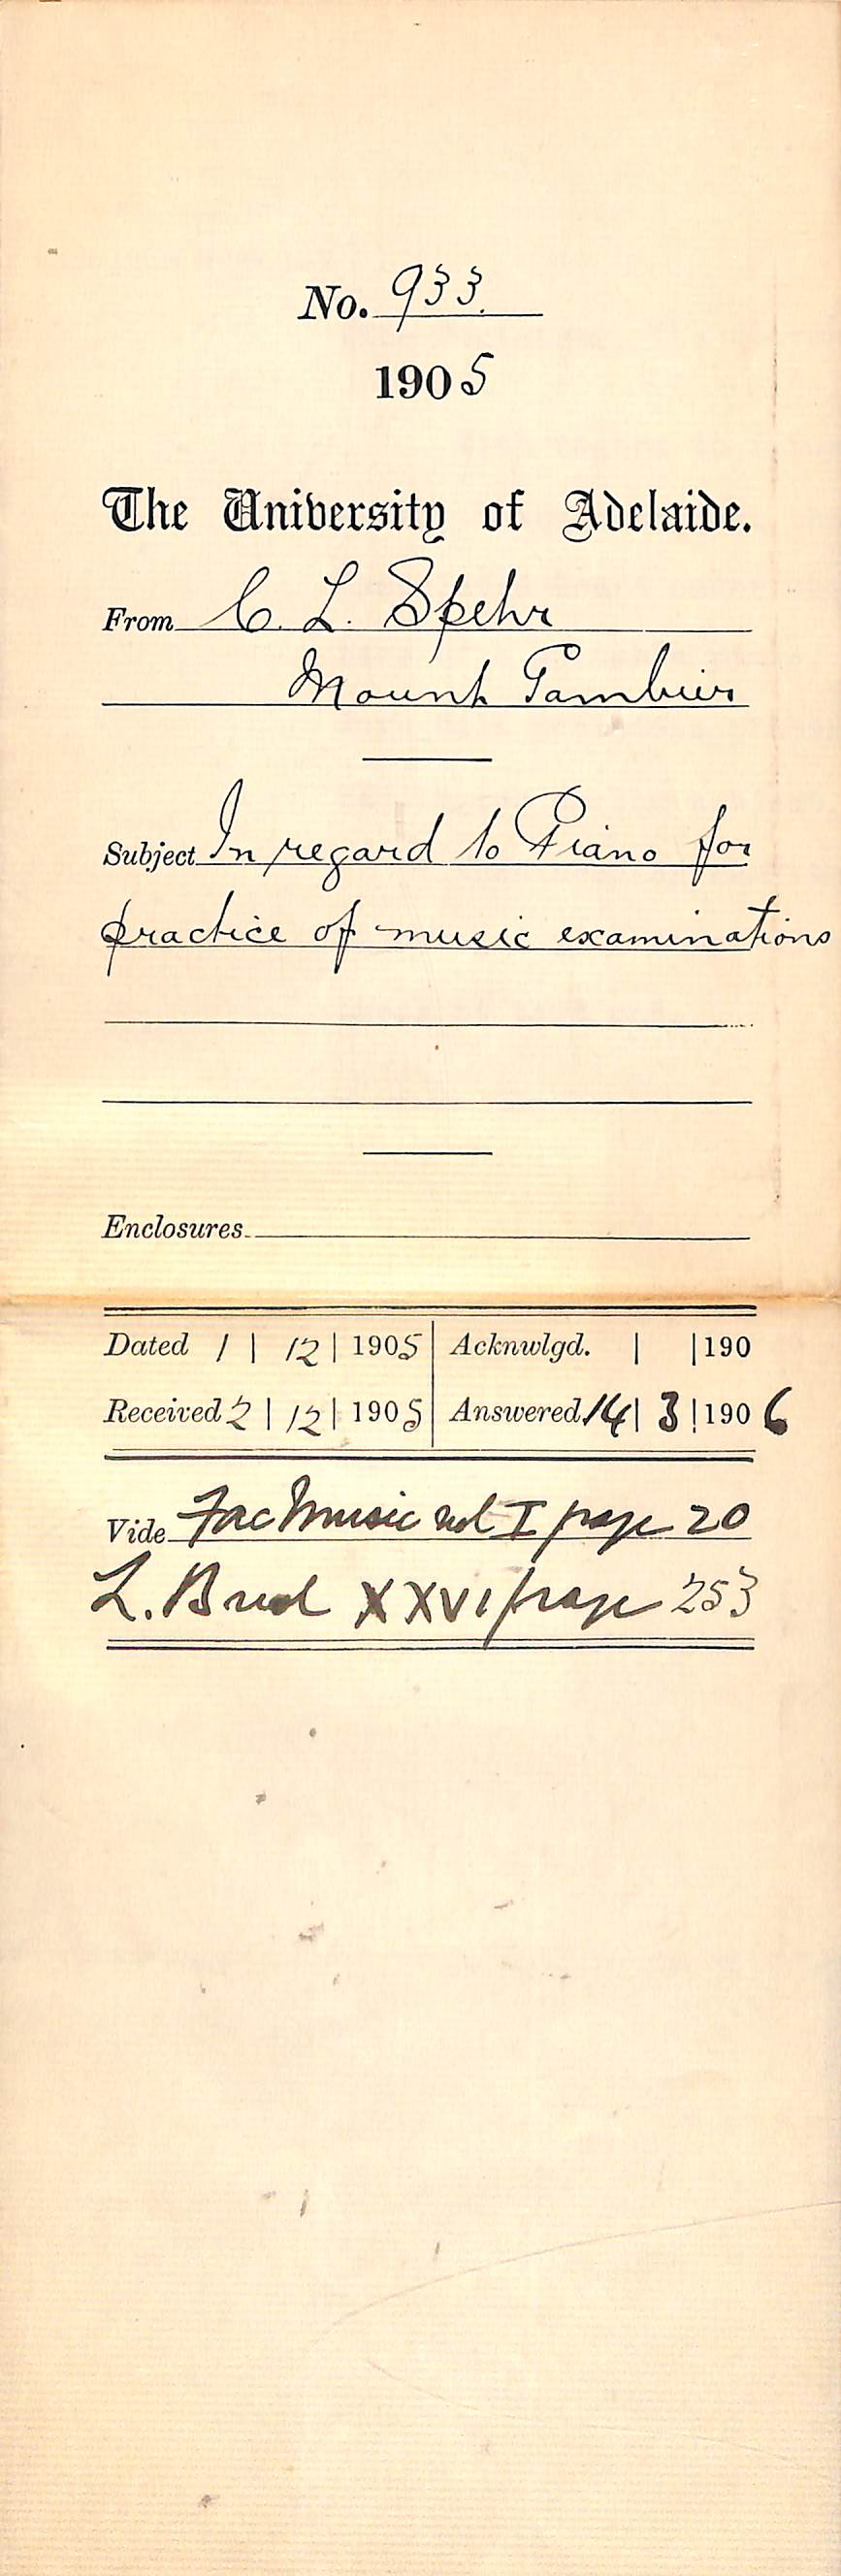 No. 933.
1905
The University of Adelaide.
From C. L. Spehr
Mount Gambier
Subject In regard to Piano for
practice of music examinations
Enclosures
Dated 1 | 12 | 1905 Acknwlgd. | | 190
Received 2 | 12 | 1905 Answered 14 | 3 | 1906
Vide Fac Music vol I page 20
L. XXVI page 253